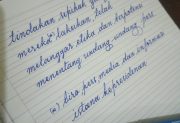 tindakan sepihak ya
mereka lakukan, telah
melanggar etika dan berpotensi
menentang undang undang pers.
(*) biro pers, media dan informasi
istana kepresidenan